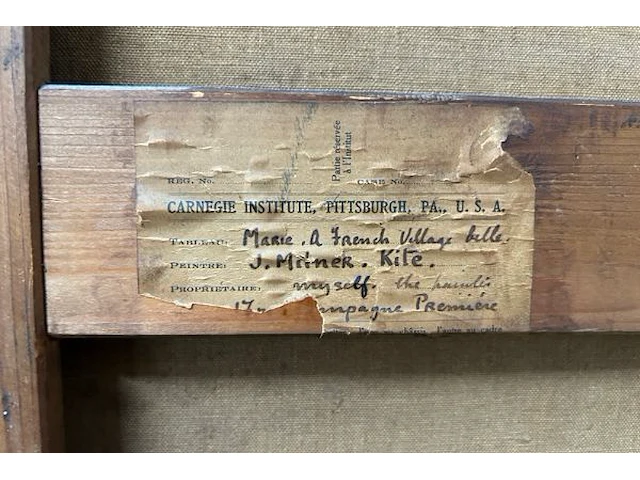 Partie réservée
à l'Institut
REG. No. CASE No.
CARNEGIE INSTITUTE, PITTSBURGH, PA., U. S. A.
TABLEAU: Marie. A French Village belle.
PEINTRE: J. Milner. Kite.
PROPRIÉTAIRE: myself. the painter
17 mpagne Première